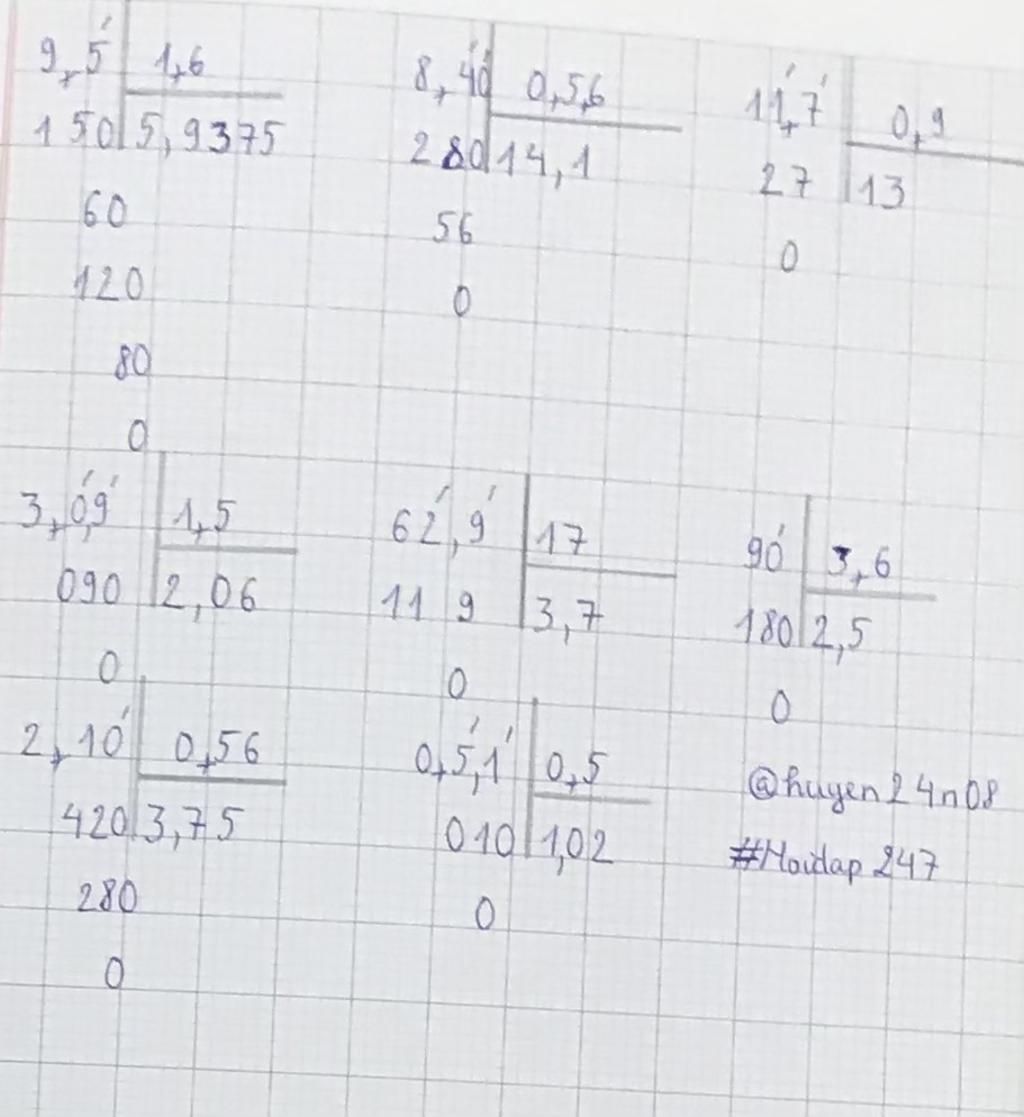 9,5 1,6
150 5,9375
60
120
80
0
8,40 0,5,6
280 14,1
56
0
11,7 0,9
27 13
0
3,0,9 1,5
090 2,06
0
62,9 17
11 9 3,7
0
90 3,6
180 2,5
0
2,10 0,56
420 3,75
280
0
0,5,1 0,5
010 1,02
0
@huyen24n08
#Hoidap247